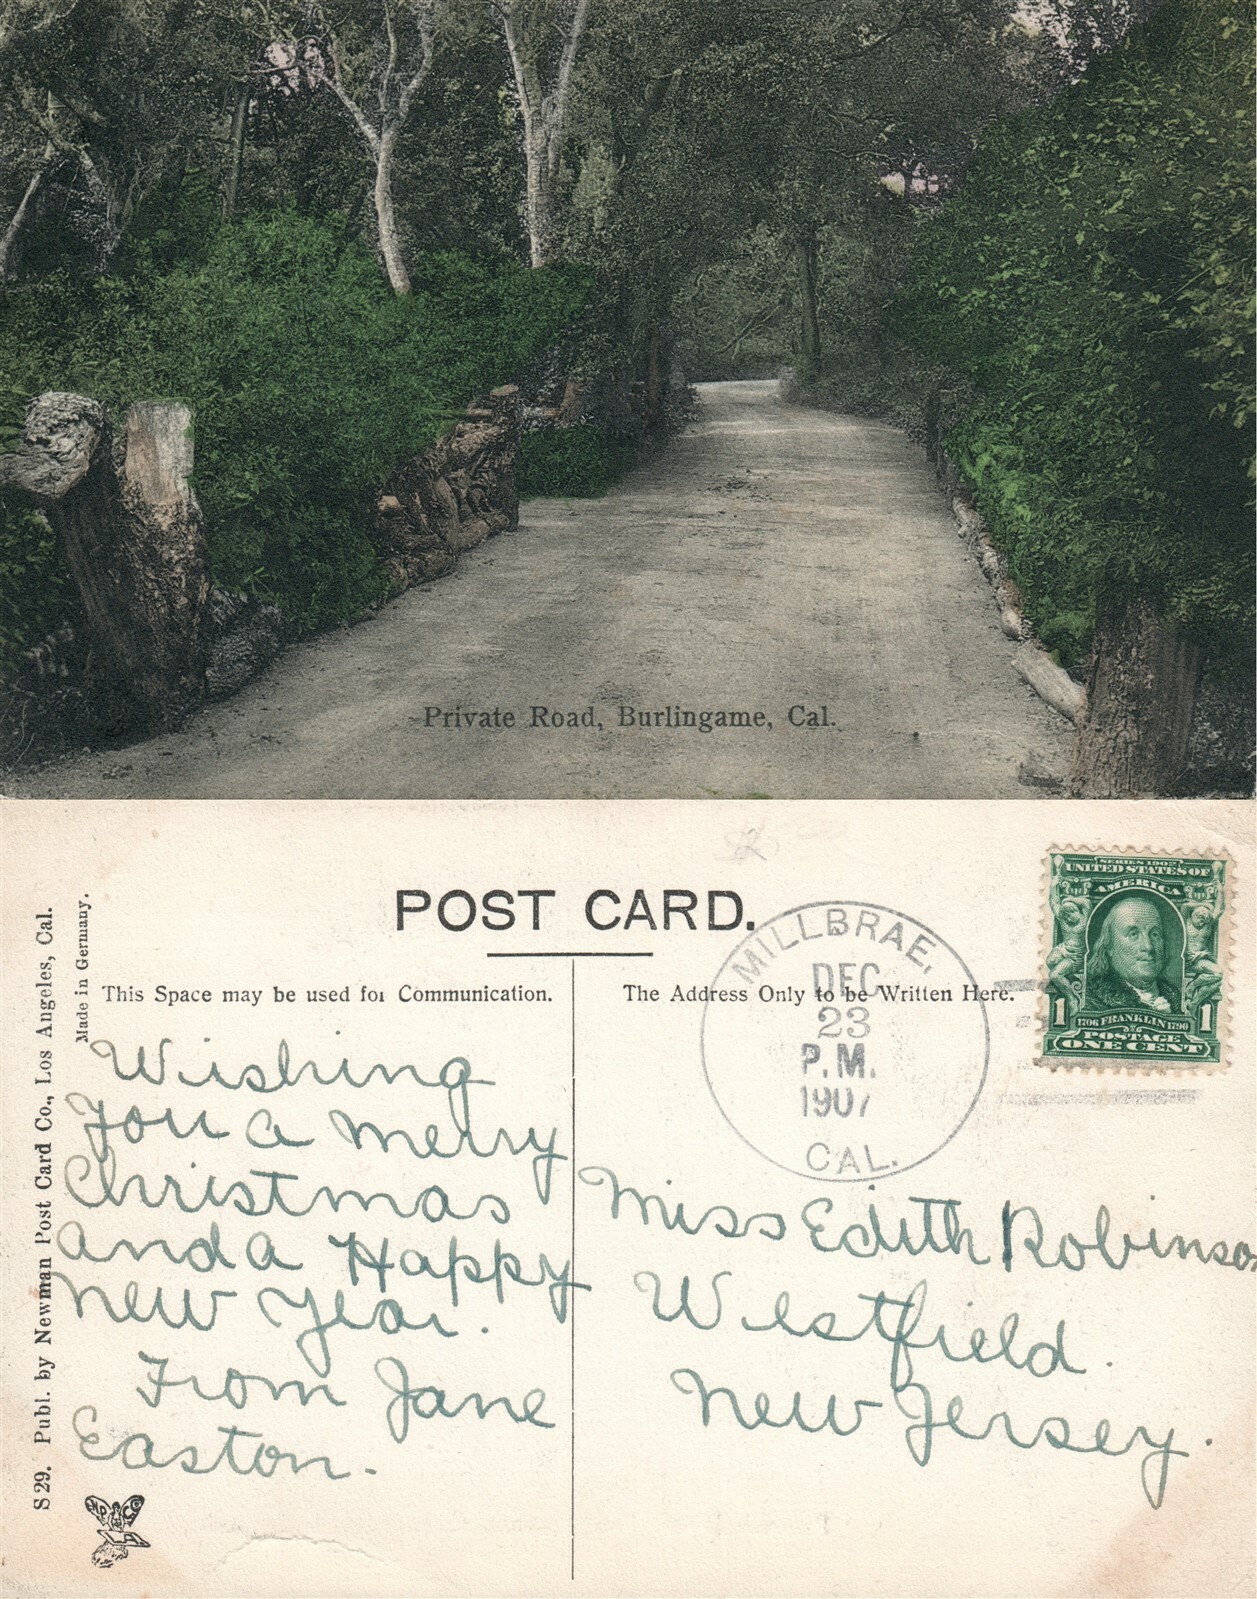 Private Road, Burlingame, Cal.
POST CARD.
This Space may be used for Communication.
The Address Only to be Written Here.
S 29. Publ. by Newman Post Card Co., Los Angeles, Cal.
Made in Germany.
MILLBRAE,
DEC
23
P.M.
1907
CAL.
SERIES 1902
UNITED STATES OF
AMERICA
1 1706 FRANKLIN 1790 1
POSTAGE
ONE CENT
Wishing
You a merry
Christmas
and a Happy
New Year.
From Jane
Easton.
Miss Edith Robinson
Westfield.
New Jersey.
LA